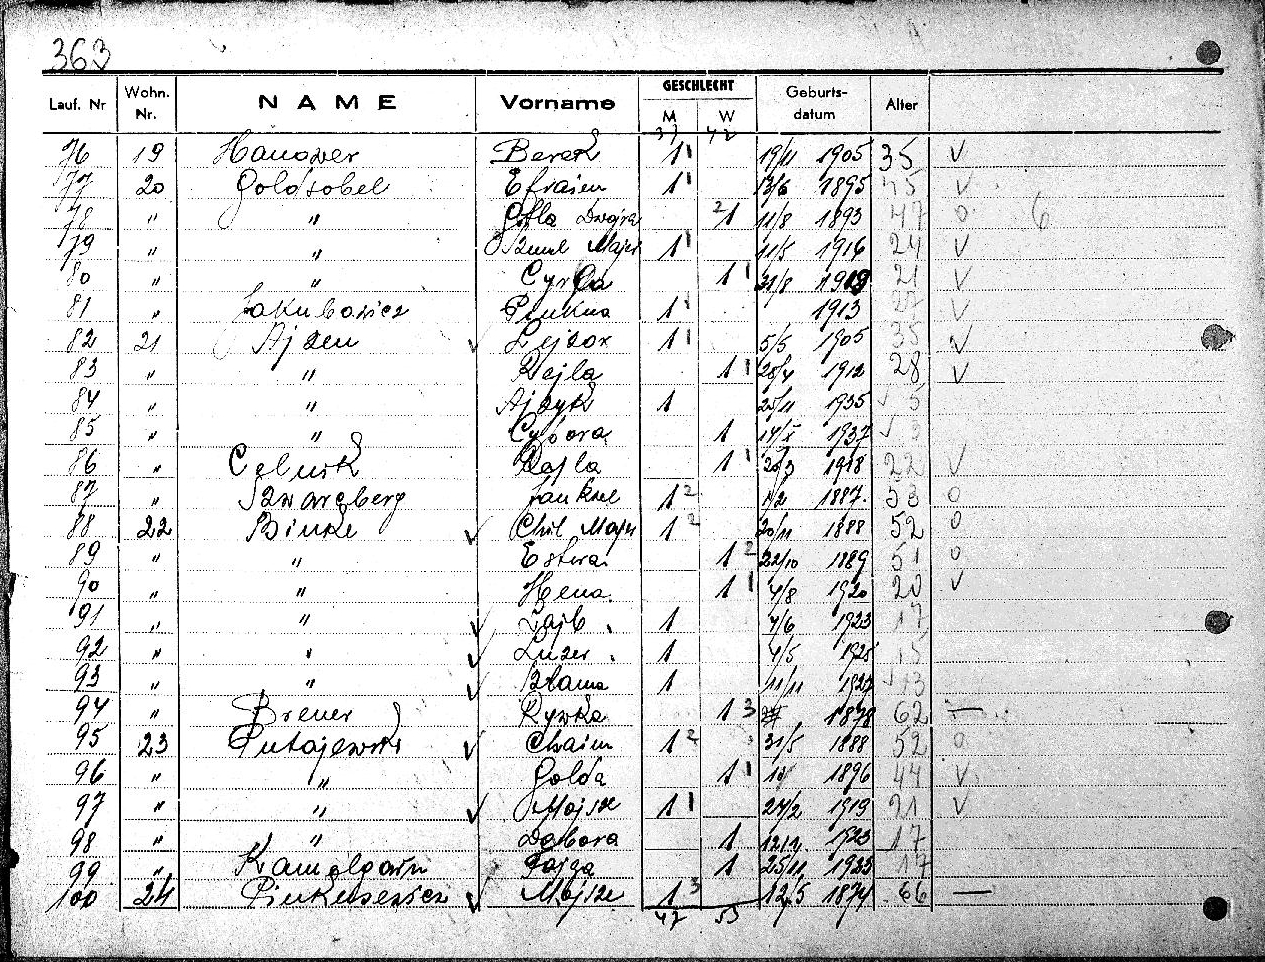 363
Lauf. Nr Wohn. Nr. NAME Vorname GESCHLECHT M W Geburts-datum Alter
37 42
76 19 Hanower Berek 1 1 19/11 1905 35 v
77 20 Goldsobel Efraim 1 1 13/6 1895 45 v
78 " " Dwojra 2 1 11/8 1893 47 o 6
79 " " Majer 1 1 11/5 1916 24 v
80 " " Cyrla 1 1 31/8 1919 21 v
81 " Jakubowicz Pinkus 1 1 1913 27 v
82 21 Ajzen v Lejzor 1 1 5/5 1905 35 v
83 " " Rajla 1 1 28/4 1912 28 v
84 " " Ajzyk 1 25/11 1935 v 5
85 " " 1 1937 v 3
86 " Rajla 1 1 1918 22 v
87 " Szwarcberg Jankel 1 2 1/2 1887. 53 o
88 22 Binke v Chil Majer 1 2 20/11 1888 52 o
89 " " Estera 1 2 22/10 1889 51 o
90 " " Hena. 1 1 4/8 1920 20 v
91 " " v Lajb. 1 4/6 1923 17
92 " " v Luzer. 1 4/5 1925 15
93 " " v Szlama 1 11/11 1927 v 13
94 " Brener Rywka 1 3 1878 62 —
95 23 v Chaim 1 2 31/5 1888 52 o
96 " " Golda 1 1 1896 44 v
97 " " v Mojsze 1 1 24/2 1919 21 v
98 " " Debora 1 1923 17
99 " Kamelgarn Fajga 1 25/11 1923 17
100 24 Pinkusewicz v Mojsze 1 3 12/5 1874 66 —
47 53